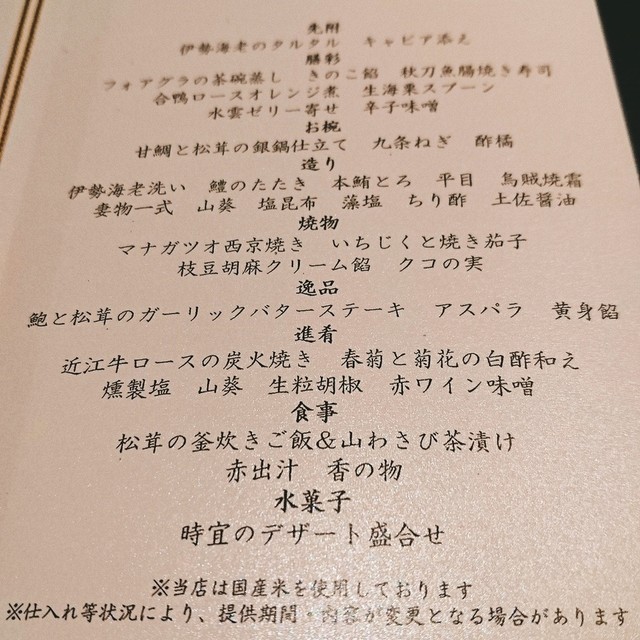 先附
伊勢海老のタルタル　キャビア添え
膳彩
フォアグラの茶碗蒸し　きのこ餡　秋刀魚腸焼き寿司
合鴨ロースオレンジ煮　生海栗スプーン
水雲ゼリー寄せ　辛子味噌
お椀
甘鯛と松茸の銀鍋仕立て　九条ねぎ　酢橘
造り
伊勢海老洗い　鱧のたたき　本鮪とろ　平目　烏賊焼霜
妻物一式　山葵　塩昆布　藻塩　ちり酢　土佐醤油
焼物
マナガツオ西京焼き　いちじくと焼き茄子
枝豆胡麻クリーム餡　クコの実
逸品
鮑と松茸のガーリックバターステーキ　アスパラ　黄身餡
進肴
近江牛ロースの炭火焼き　春菊と菊花の白酢和え
燻製塩　山葵　生粒胡椒　赤ワイン味噌
食事
松茸の釜炊きご飯&山わさび茶漬け
赤出汁　香の物
水菓子
時宜のデザート盛合せ
※当店は国産米を使用しております
※仕入れ等状況により、提供期間・内容が変更となる場合があります